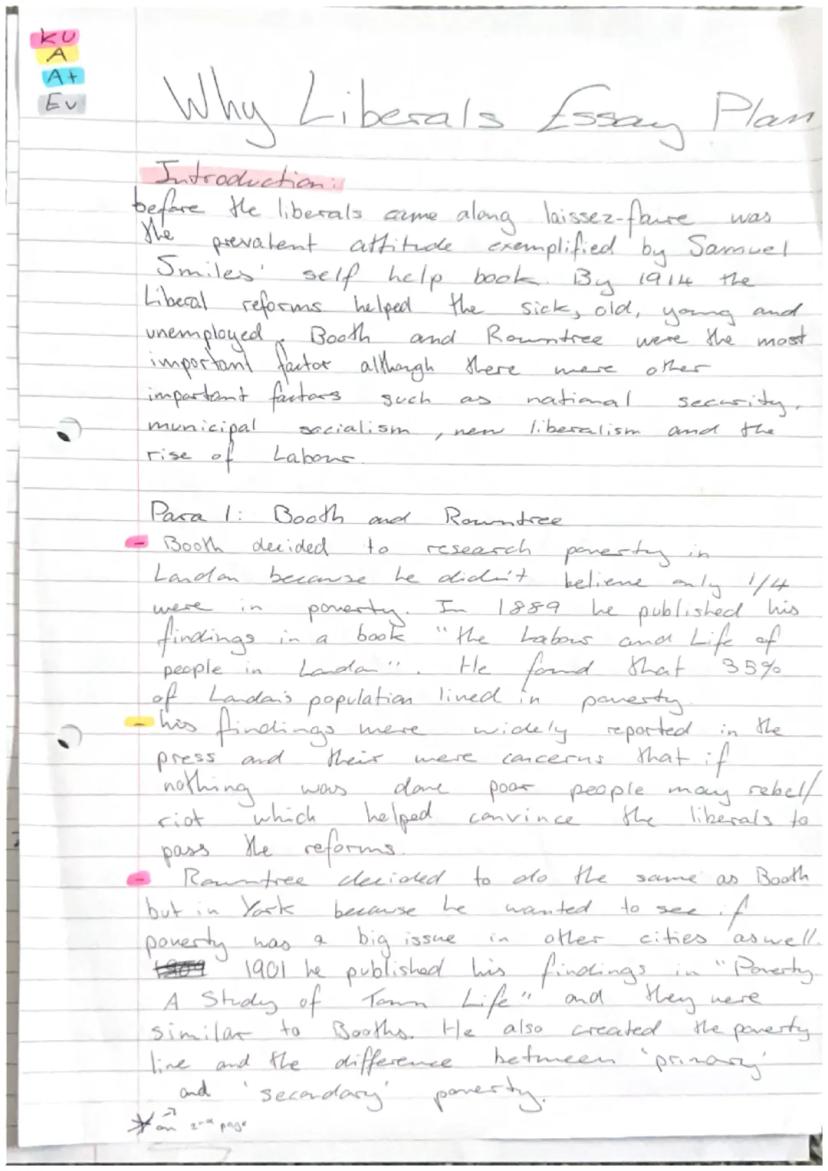 KU
A
A+
Ev
Why Liberals Essay Plan
Introduction:
before the liberals came along laissez-faire was
the prevalent attitude exemplified by Samuel
Smiles' self help book. By 1914 the
Liberal reforms helped the sick, old, young and
unemployed. Booth and Rowntree were the most
important factor although there were other
important factors such as national security,
municipal socialism, new liberalism and the
rise of Labour.
Para 1: Booth and Rowntree
- Booth decided to research poverty in
London because he didn't believe only 1/4
were in poverty. In 1889 he published his
findings in a book "the Labour and Life of
people in London". He found that 35%
of London's population lived in poverty.
- his findings were widely reported in the
press and their were concerns that if
nothing was done poor people may rebel/
riot which helped convince the liberals to
pass the reforms.
- Rowntree decided to do the same as Booth
but in York because he wanted to see if
poverty was a big issue in other cities aswell.
1901 he published his findings in "Poverty
A Study of Town Life" and they were
similar to Booths. He also created the poverty
line and the difference between 'primary'
and 'secondary' poverty.
* → on 2nd page